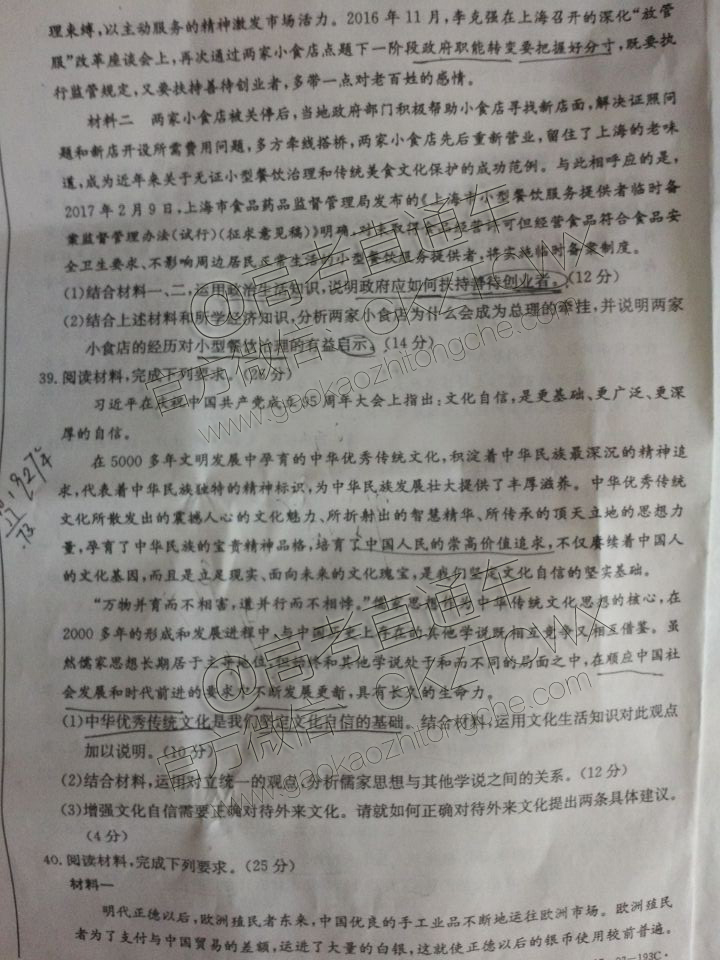 理束缚,以主动服务的精神激发市场活力。2016年11月,李克强在上海召开的深化“放管
服”改革座谈会上,再次通过两家小食店点题下一阶段政府职能转变要把握好分寸,既要执
行监管规定,又要扶持善待创业者,多带一点对老百姓的感情。
材料二 两家小食店被关停后,当地政府部门积极帮助小食店寻找新店面,解决证照问
题和新店开设所需费用问题,多方牵线搭桥,两家小食店先后重新营业,留住了上海的老味
道,成为近年来关于无证小型餐饮治理和传统美食文化保护的成功范例。与此相呼应的是,
2017年2月9日,上海市食品药品监督管理局发布的《上海市小型餐饮服务提供者临时备
案监督管理办法(试行)(征求意见稿)》明确,对未取得食品经营许可但经营食品符合食品安
全卫生要求、不影响周边居民正常生活的小型餐饮服务提供者,将实施临时备案制度。
(1)结合材料一、二,运用政治生活知识,说明政府应如何扶持善待创业者。(12分)
(2)结合上述材料和所学经济知识,分析两家小食店为什么会成为总理的牵挂,并说明两家
小食店的经历对小型餐饮治理的有益启示。(14分)
39.阅读材料,完成下列要求。(26分)
习近平在庆祝中国共产党成立95周年大会上指出:文化自信,是更基础、更广泛、更深
厚的自信。
在5000多年文明发展中孕育的中华优秀传统文化,积淀着中华民族最深沉的精神追
求,代表着中华民族独特的精神标识,为中华民族发展壮大提供了丰厚滋养。中华优秀传统
文化所散发出的震撼人心的文化魅力、所折射出的智慧精华、所传承的顶天立地的思想力
量,孕育了中华民族的宝贵精神品格,培育了中国人民的崇高价值追求,不仅赓续着中国人
的文化基因,而且是立足现实、面向未来的文化瑰宝,是我们坚定文化自信的坚实基础。
“万物并育而不相害,道并行而不相悖。”儒家思想作为中华传统文化思想的核心,在
2000多年的形成和发展进程中,与中国历史上存在的其他学说既相互竞争又相互借鉴。虽
然儒家思想长期居于主导地位,但始终和其他学说处于和而不同的局面之中,在顺应中国社
会发展和时代前进的要求中不断发展更新,具有长久的生命力。
(1)中华优秀传统文化是我们坚定文化自信的基础。结合材料,运用文化生活知识对此观点
加以说明。(10分)
(2)结合材料,运用对立统一的观点,分析儒家思想与其他学说之间的关系。(12分)
(3)增强文化自信需要正确对待外来文化。请就如何正确对待外来文化提出两条具体建议。
(4分)
40.阅读材料,完成下列要求。(25分)
材料一
明代正德以后,欧洲殖民者东来,中国优良的手工业品不断地运往欧洲市场。欧洲殖民
者为了支付与中国贸易的差额,运进了大量的白银,这就使正德以后的银币使用较前普遍。
03—193C·
@高考直通车
官方微信:GKZTCWX
www.gaokaozhitongche.com
@高考直通车
官方微信:GKZTCWX
www.gaokaozhitongche.com